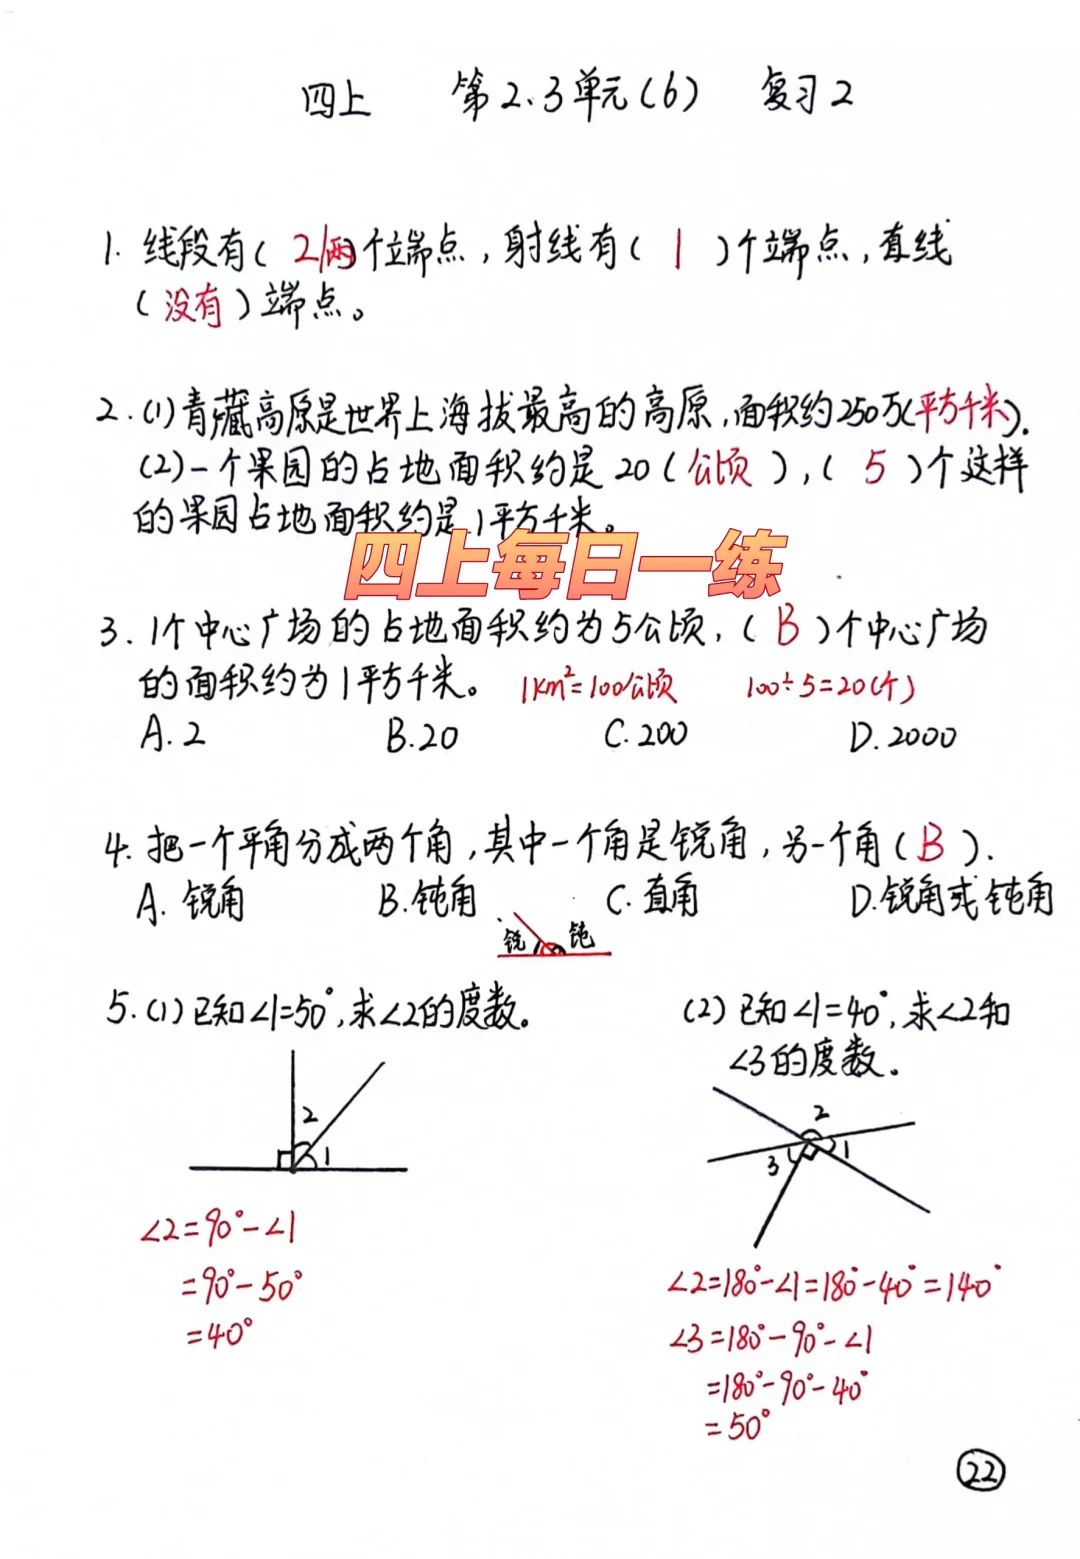 四上 第2.3单元(6) 复习2
1. 线段有( 2/两 )个端点,射线有( 1 )个端点,直线
(没有)端点。
2.(1)青藏高原是世界上海拔最高的高原,面积约250万(平方千米).
(2)一个果园的占地面积约是20(公顷),( 5 )个这样
的果园占地面积约是1平方千米。
四上每日一练
3. 1个中心广场的占地面积约为5公顷,( B )个中心广场
的面积约为1平方千米。 1km²=100公顷 100÷5=20(个)
A.2 B.20 C.200 D.2000
4. 把一个平角分成两个角,其中一个角是锐角,另一个角(B).
A. 锐角 B.钝角 C.直角 D.锐角或钝角
锐 钝
5.(1)已知∠1=50°,求∠2的度数。 (2)已知∠1=40°,求∠2和
∠3的度数。
2 1
2 1 3
∠2=90°-∠1
=90°-50°
=40°
∠2=180°-∠1=180°-40°=140°
∠3=180°-90°-∠1
=180°-90°-40°
=50°
22